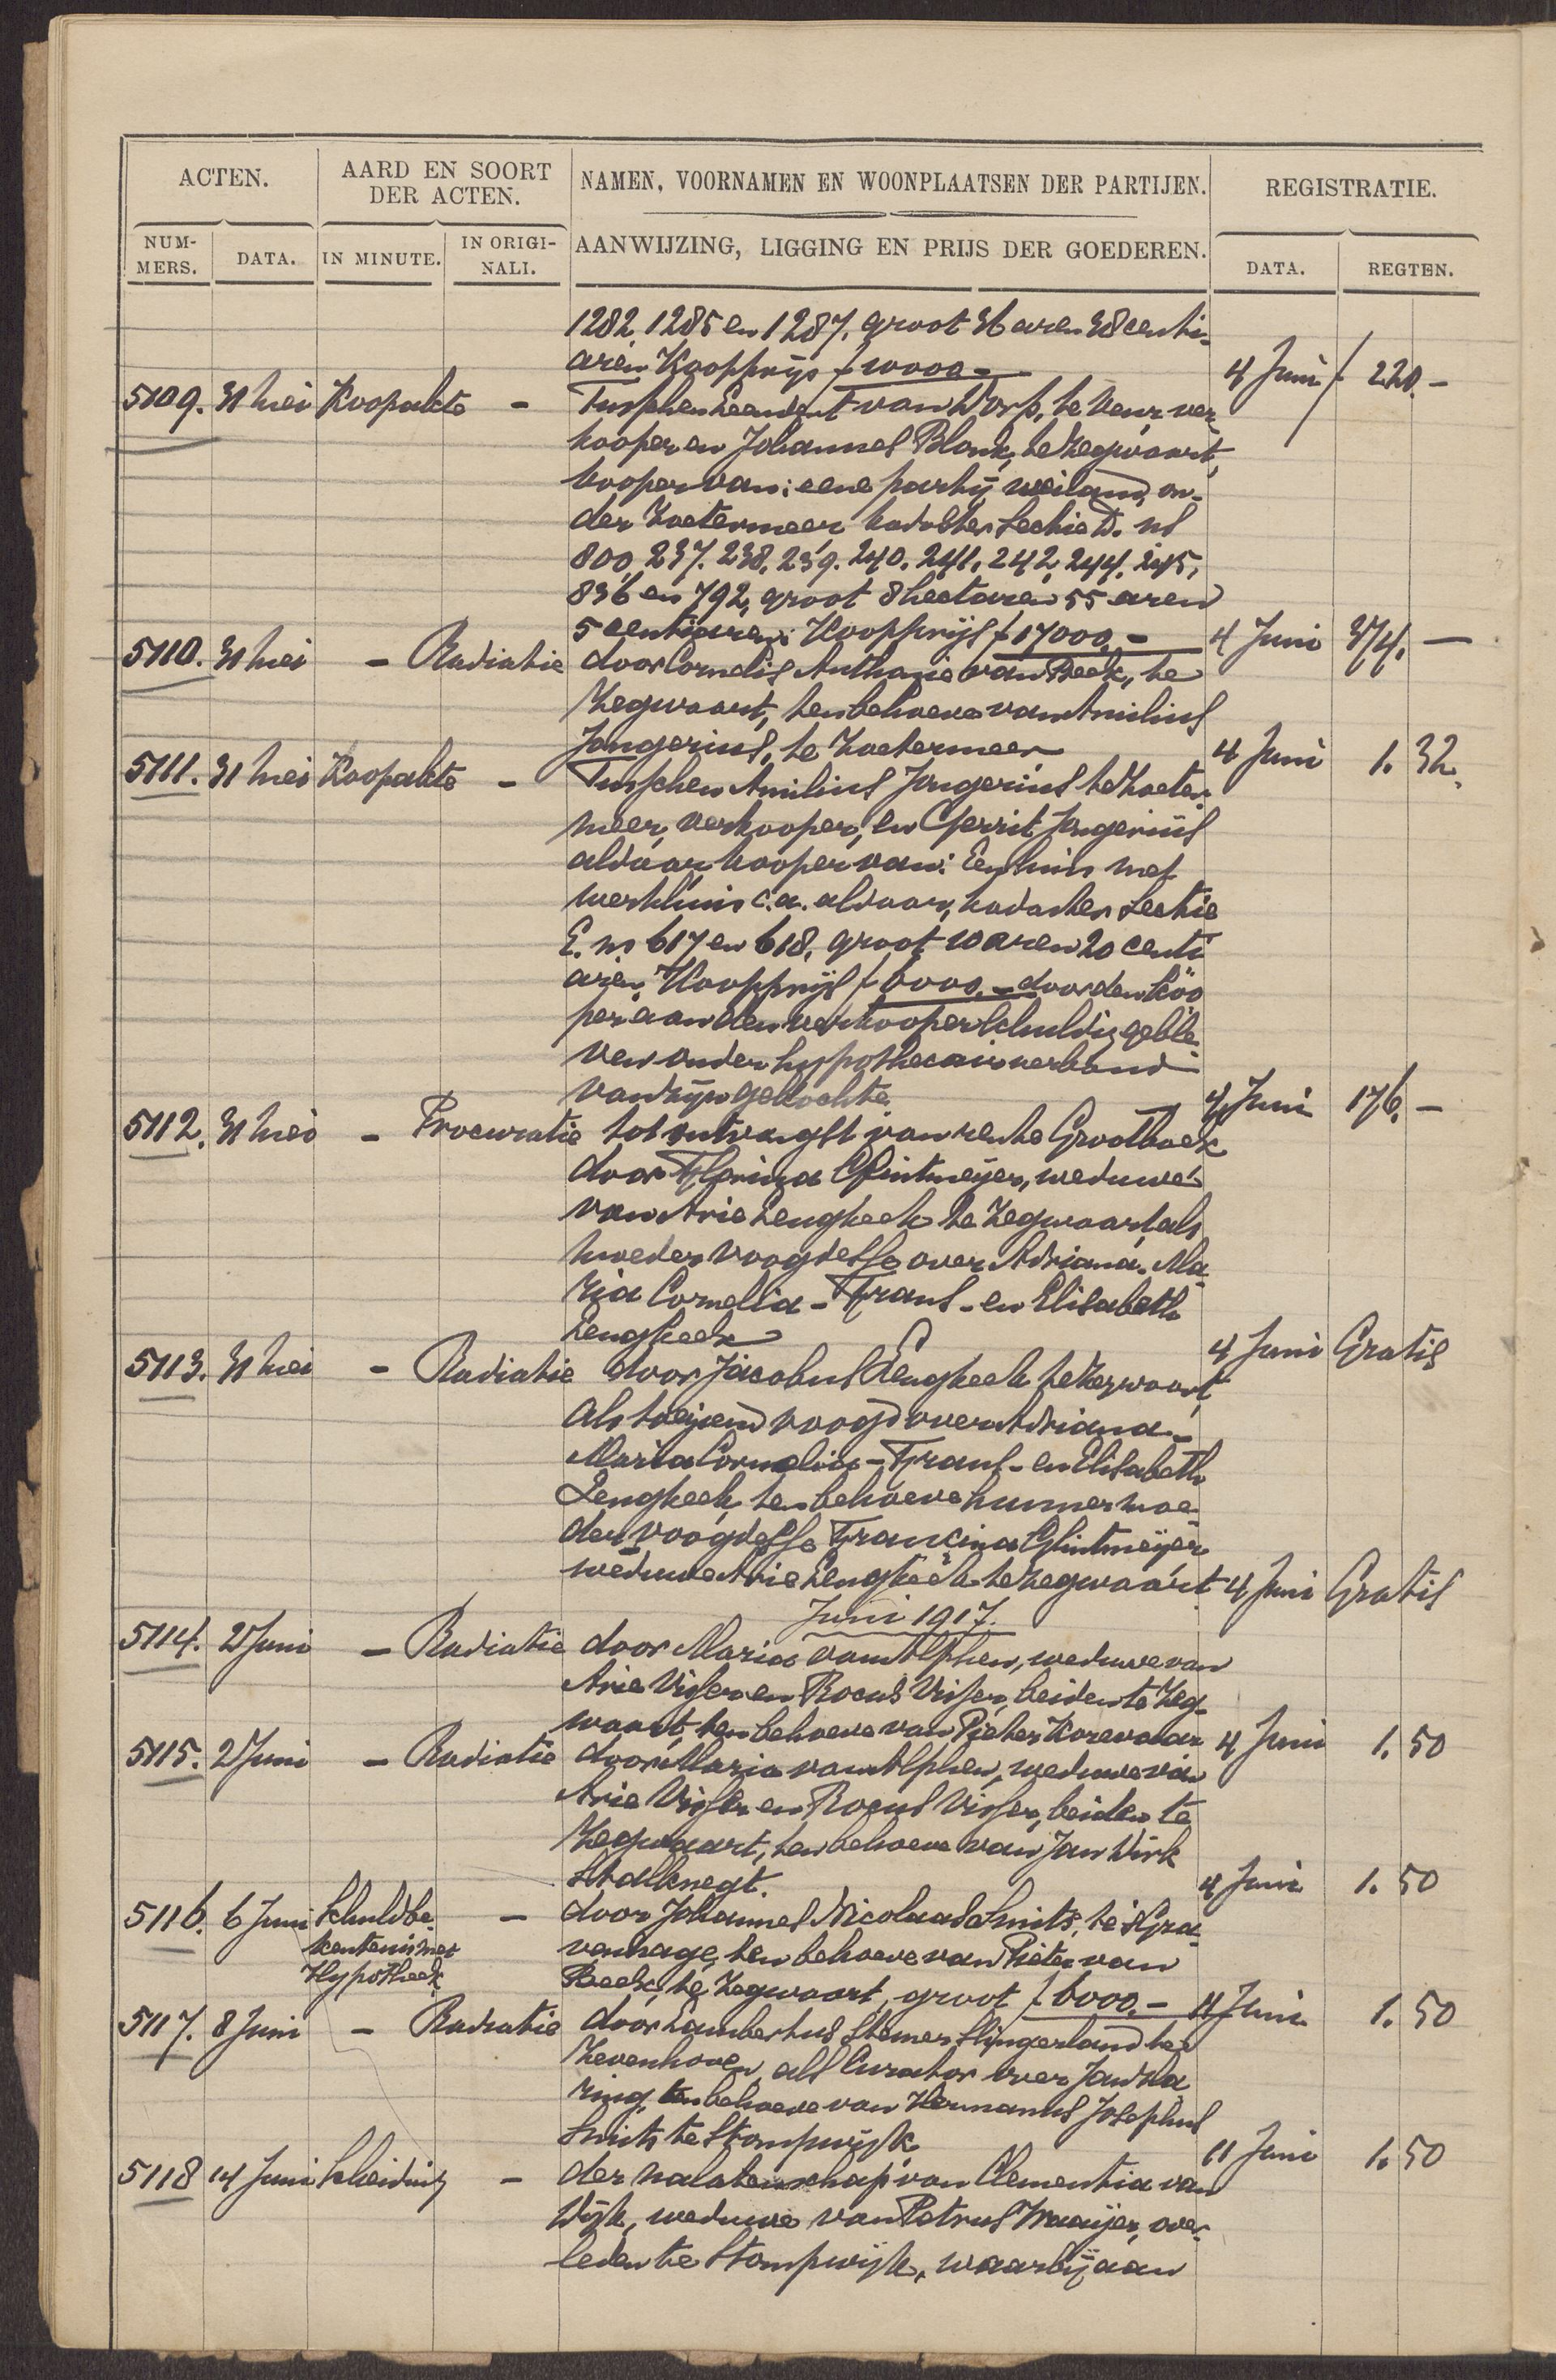 ACTEN.
AARD EN SOORT
DER ACTEN.
NAMEN, VOORNAMEN EN WOONPLAATSEN DER PARTIJEN.
REGISTRATIE.
NUM-
MERS.
DATA.
IN MINUTE.
IN ORIGI-
NALI.
AANWIJZING, LIGGING EN PRIJS DER GOEDEREN.
DATA.
REGTEN.
1282, 1285 en 1287, groot 36 aren 38 centi-
aren Koopprijs f 10000.- 4 Juni f 220.-
5109. 31 Mei Koopakte - Tusschen Leendert van Dorp, te Veur, ver-
kooper en Johannes Blonk, te Zegwaart,
kooper van: eene partij weiland, on-
der Zoetermeer kadaster Sectie D. ns
800, 237. 238. 239. 240. 241. 242. 244. 245,
836 en 792, groot 8 hectaren 55 aren
5 centiaren: Koopprijs f 17000.- 4 Juni 374. -
5110. 31 Mei - Radiatie door Cornelis Anthonie van Beek, te
Zegwaart, ten behoeve van Amilius
Jongerius, te Zoetermeer 4 Juni 1. 32.
5111. 31 Mei Koopakte - Tusschen Amilius Jongerius te Zoeter-
meer, verkooper, en Gerrit Jongerius
aldaar kooper van: Een huis met
werkhuis c.a. aldaar, kadaster Sectie
E. ns 617 en 618, groot 10 aren 20 centi
aren, Koopprijs f 8000.- door den koo
per aan den verkooper schuldig geble-
ven onder hypothecair verband
van zijn gekochte. 4 Juni 176. -
5112. 31 Mei - Procuratie tot ontvangst van rente Grootboek
door Glintmeijer, weduwe
van Arie Lengkeek te Zegwaart, als
moeder voogdesse over Adriana. Ma-
ria Cornelia - Frans - en Elisabeth
Lengkeek 4 Juni Gratis
5113. 31 Mei - Radiatie door Jacobus Lengkeek te Zegwaart,
als toeziend voogd over Adriana -
Maria Cornelia - Frans - en Elisabeth
Lengkeek, ten behoeve hunner moe-
der voogdesse Francina Glintmeijer
weduwe Arie Lengkeek te Zegwaart 4 Juni Gratis
Juni 1917.
5114. 2 Juni - Radiatie door Maria van Alphen, weduwe van
Arie Visser en Rocus Visser, beiden te Zeg-
waart, ten behoeve van Pieter Korevaar 4 Juni 1. 50
5115. 2 Juni - Radiatie door Maria van Alphen, weduwe van
Arie Visser en Rocus Visser, beiden te
Zegwaart, ten behoeve van Jan Dirk
Stalknegt. 4 Juni 1. 50
5116. 6 Juni Schuldbe- - door Johannes Nicolaas Smits, te 's Gra-
kentenis met venhage, ten behoeve van Pieter van
Hypotheek Beek, te Zegwaart, groot f 6000.- 11 Juni 1. 50
5117. 8 Juni - Radiatie door Lambertus Slingerland te
Zevenhoven, als Curator over
ring, ten behoeve van Hermanus Josephus
Smits te Stompwijk 11 Juni 1. 50
5118 14 Juni Scheiding - der nalatenschap van Clementia van
Wijk, weduwe van Petrus over-
leden te Stompwijk, waarbij aan